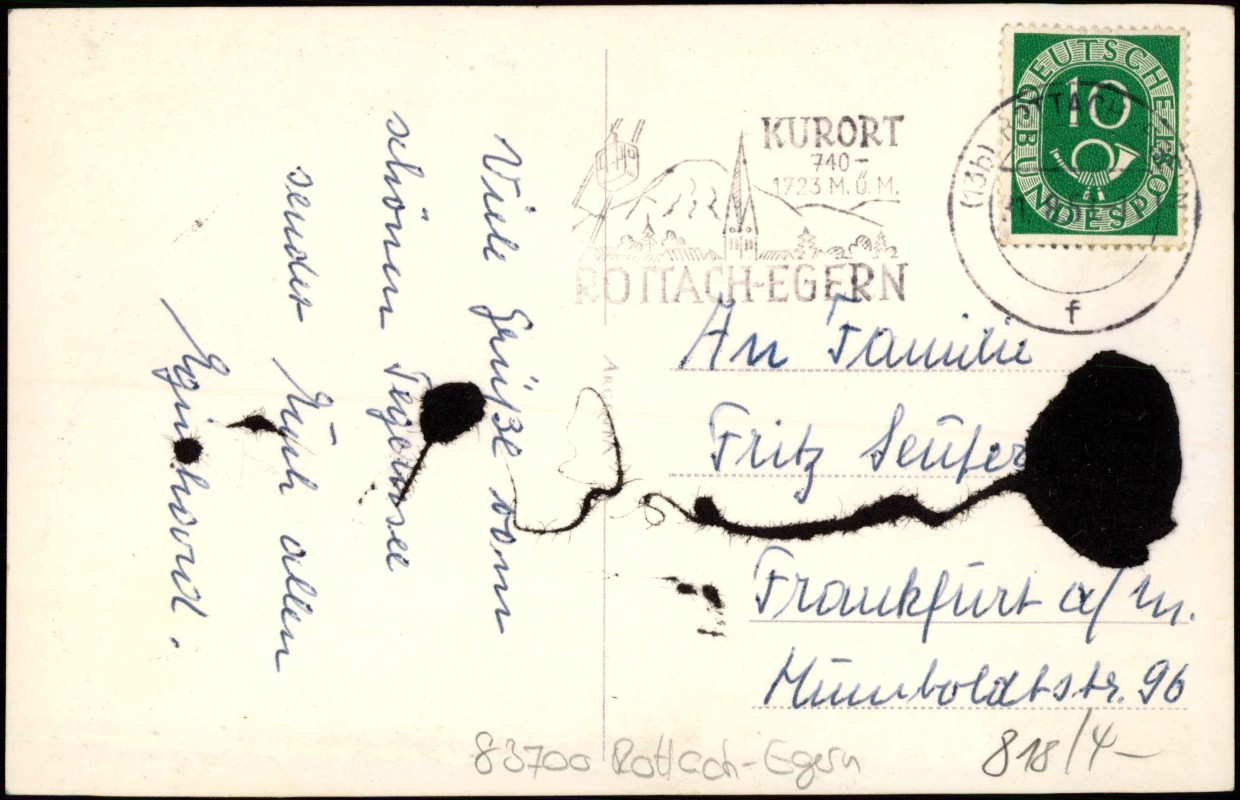 Viele Grüße vom
schönen Tegernsee
sendet Euch allen
Eginhard.
KURORT
740-
1723 M.Ü.M.
ROTTACH-EGERN
DEUTSCHE
BUNDESPOST
10
(13b) ROTTACH-EGERN
f
An Familie
Fritz
Frankfurt a/M.
Humboldtstr. 96
83700 Rottach-Egern
818/4-